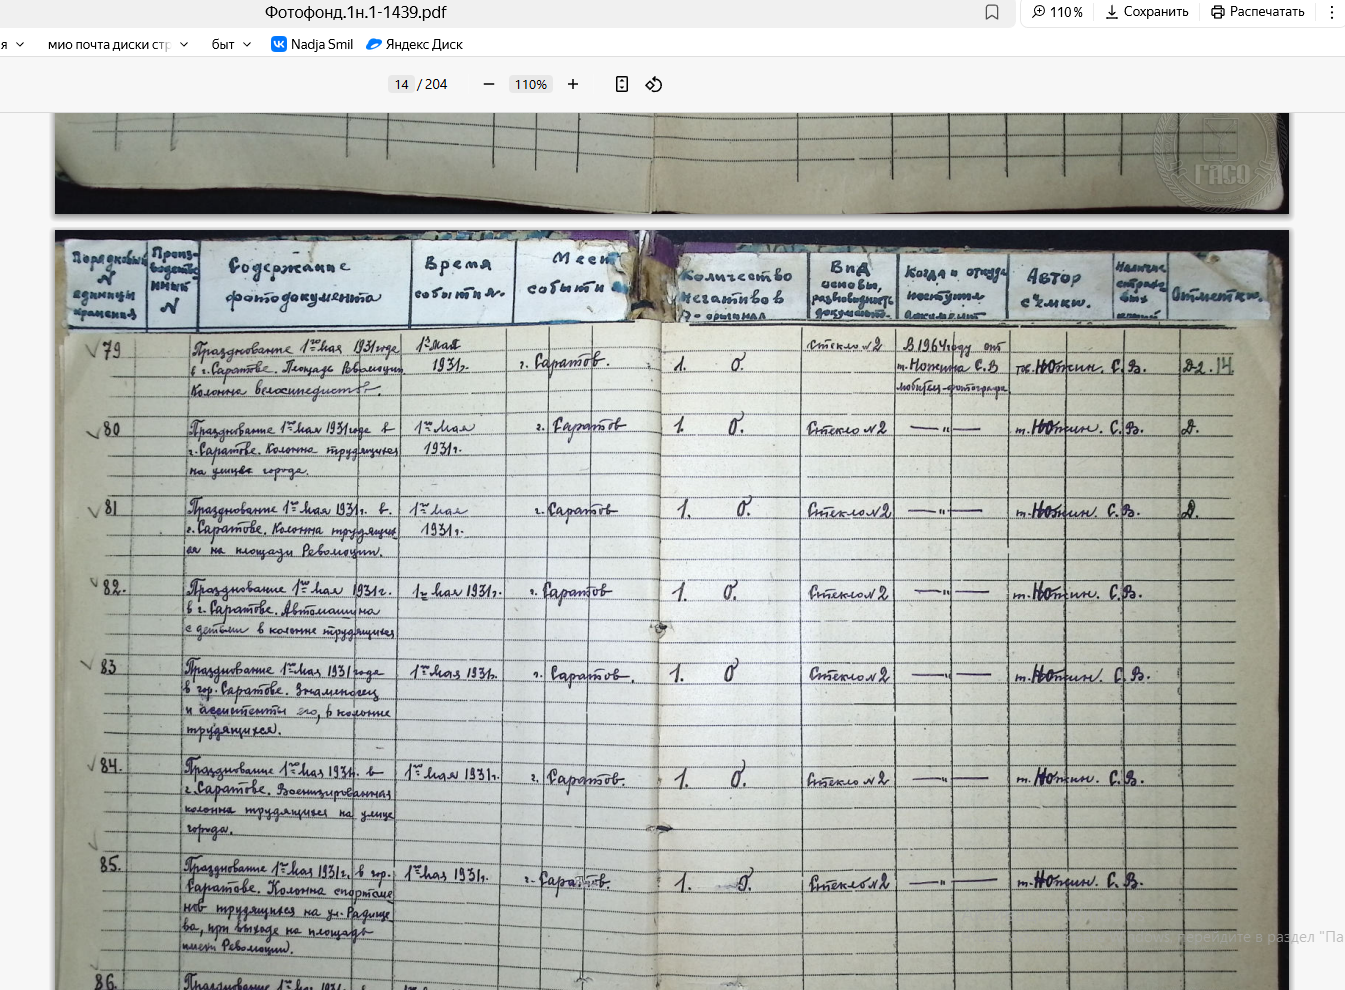 Фотофонд.1н.1-1439.pdf
110 %
Сохранить
Распечатать
я
мио почта диски стр
быт
Nadja Smil
Яндекс Диск
14 / 204
110%
ГАСО
Порядковый N единицы хранения
Произ-водственный N
Содержание фотодокумента
Время события
Мест событи
Количество негативов
Вид основы, разновидность
Когда и откуда поступил документ
Автор съёмки.
Отметки.
79
Празднование 1го Мая 1931 годе
в г. Саратове. Площадь Революции
Колонна велосипедистов.
1е Мая
1931г.
г. Саратов.
1. О.
Стекло №2
В 1964 году от
т. Ножина С.В
любител-фотографа
тов. Ножин. С.В.
Д-2. 14.
80
Празднование 1го Мая 1931 годе в
г. Саратове. Колонна трудящихся
на улице города.
1го Мая
1931г.
г. Саратов
1. О.
Стекло №2
— " —
т. Ножин. С.В.
Д.
81
Празднование 1го Мая 1931г. в.
г. Саратове. Колонна трудящих
ся на площади Революции.
1го Мая
1931г.
г. Саратов
1. О.
Стекло №2
— " —
т. Ножин. С.В.
Д.
82.
Празднование 1го Мая 1931г.
в г. Саратове. Автомашина
с детьми в колонне трудящихся
1го Мая 1931г.
г. Саратов
1. О.
Стекло №2
— " —
т. Ножин. С.В.
83
Празднование 1го Мая 1931 годе
в гор. Саратове. Знаменосец
и ассистенты его, в колонне
трудящихся.
1го Мая 1931г.
г. Саратов.
1. О
Стекло №2
— " —
т. Ножин. С.В.
84.
Празднование 1го Мая 1931г. в
г. Саратове. Военизированная
колонна трудящихся на улице
города.
1го Мая 1931г.
г. Саратов.
1. О.
Стекло №2
— " —
т. Ножин. С.В.
85.
Празднование 1го Мая 1931г. в гор.
Саратове. Колонна спортсме
нов трудящихся на ул. Радище
ва, при выходе на площадь
имени Революции.
1го Мая 1931г.
г. Саратов.
1. О.
Стекло №2
— " —
т. Ножин. С.В.
86.
перейдите в раздел "Па